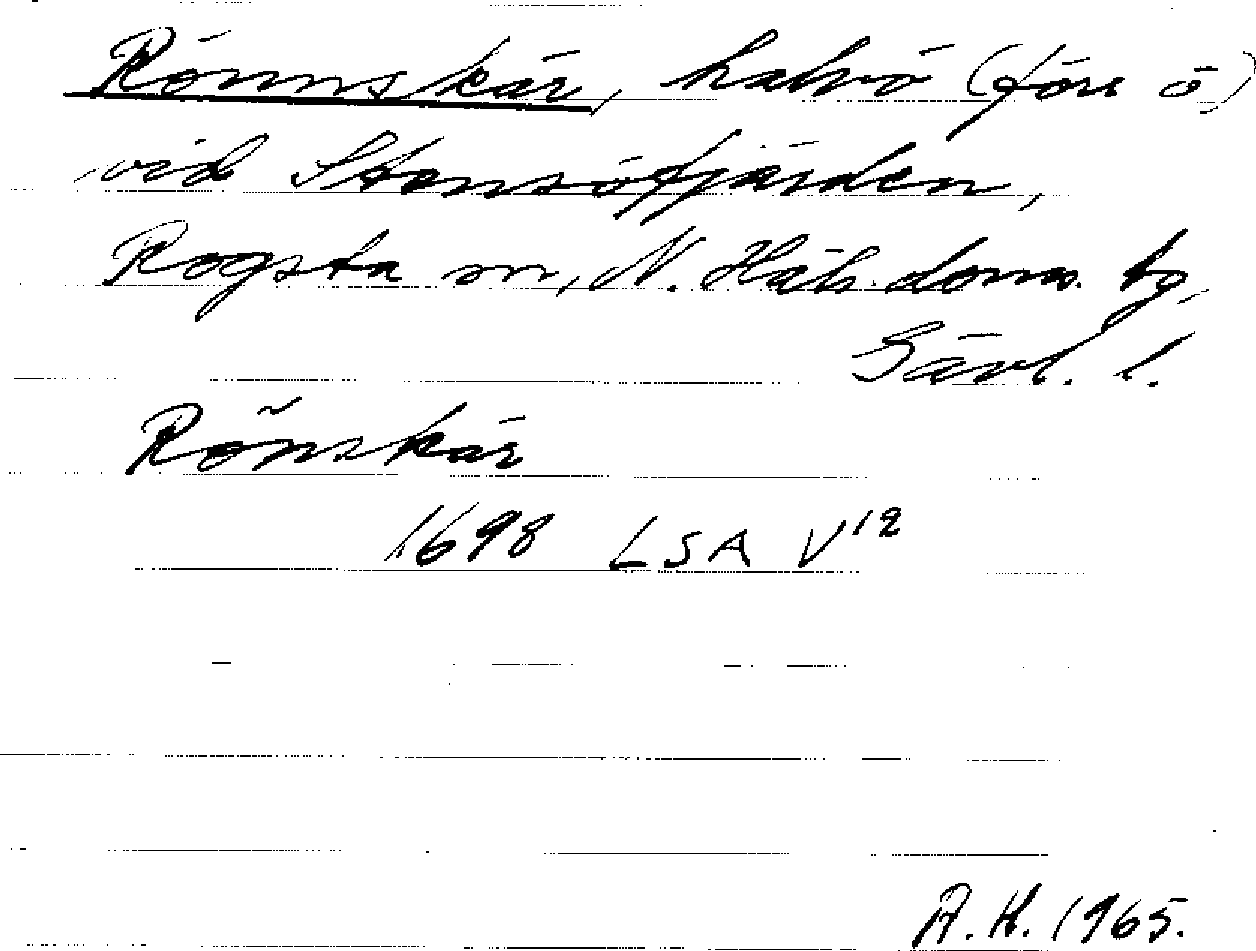 Rönnskär, halvö (förr ö)
vid Stensöfjärden,
Rogsta sn, N. Häls. doms. tg,
Gävl. l.
Rönskär
1698 LSA V12
A.H. 1965.